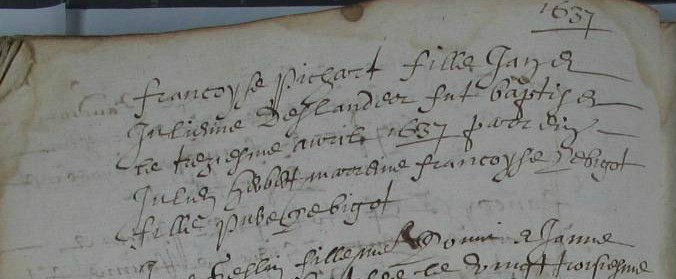 1637
francoyse pichart fille Jan &
Julienne Deslandes fut baptisee
le treziesme apvril 1637 parain
Julien Herbert maraine francoyse Lebigot
fille Lebigot
fille & Janne
le vingt troisiesme